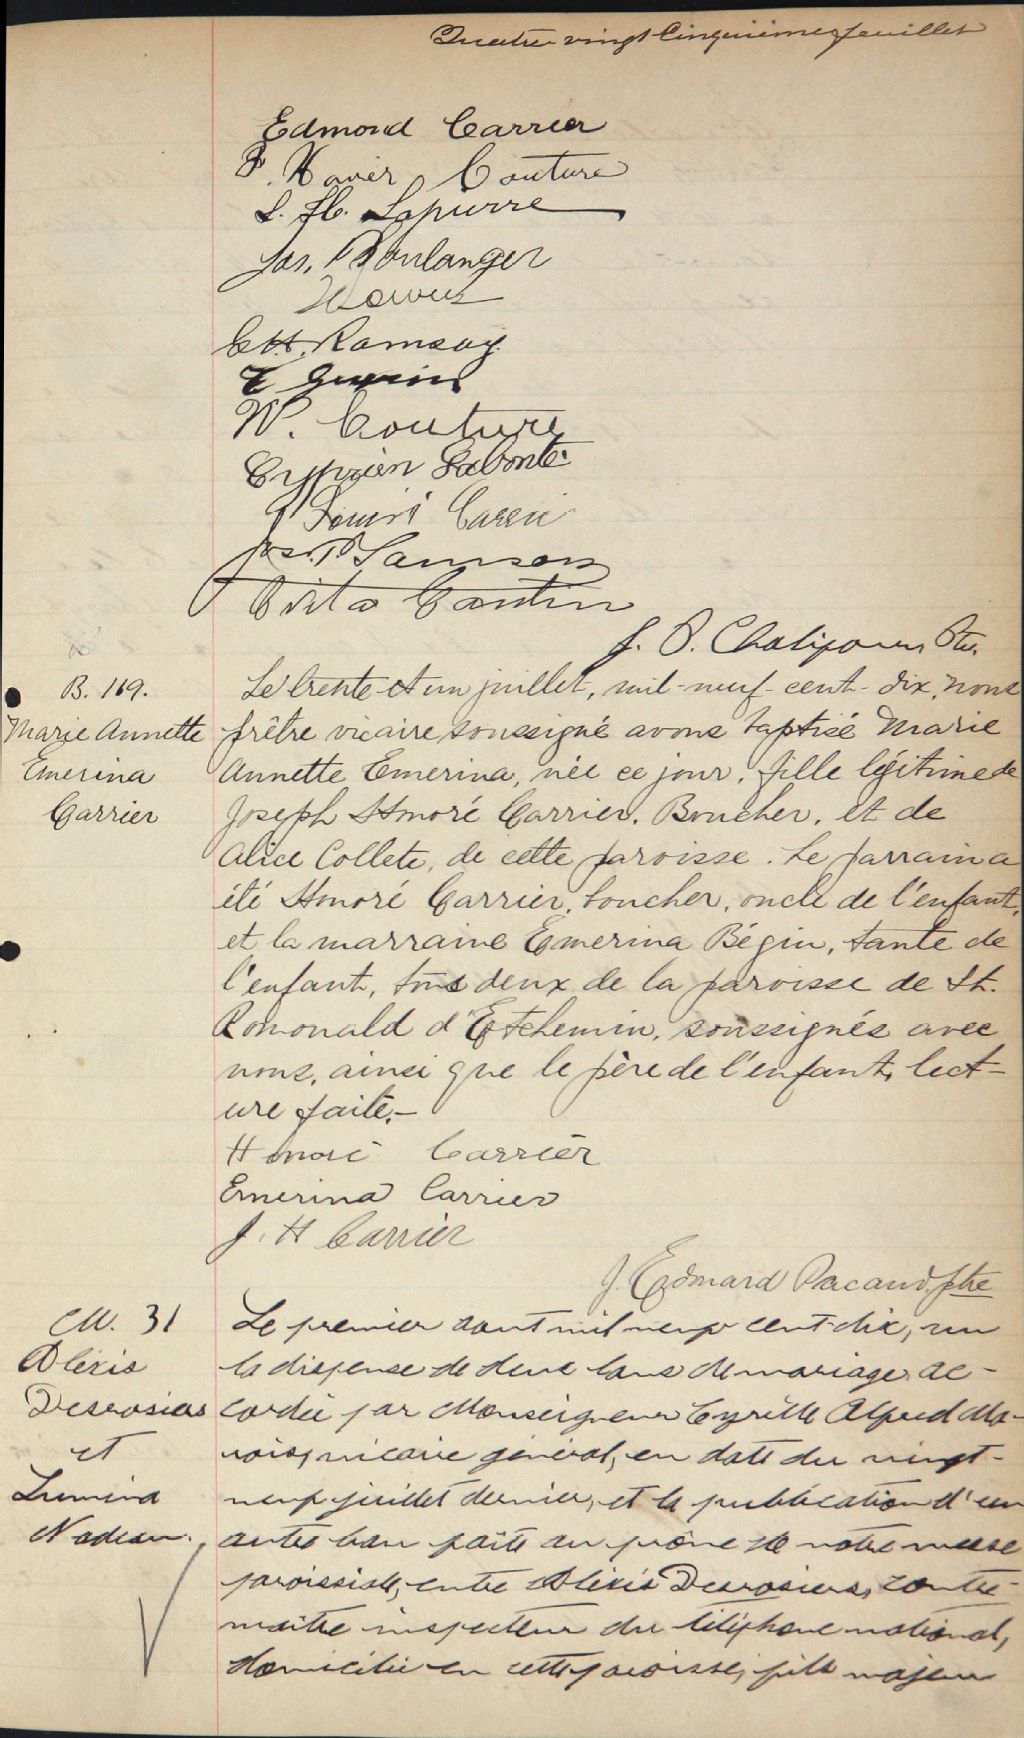 Quatre vingt Cinquième feuillet
Edmond Carrier
F. Xavier Couture
L. H. Lapierre
Jos. Boulanger
C. H. Ramsay
E Guérin
W. Couture
Cyprien Labonté
J Louis Carrier
Jos. P Samson
Vita Cantin
J. O. Chalifour, Ptr.
B. 119.
Marie Annette
Emerina
Carrier
Le trente-et un juillet, mil-neuf-cent-dix, nous
prêtre vicaire soussigné avons baptisé Marie
Annette Emerina, née ce jour, fille légitime de
Joseph Honoré Carrier, Boucher, et de
Alice Collete, de cette paroisse. Le parrain a
été Honoré Carrier, boucher, oncle de l'enfant,
et la marraine Emerina Bégin, tante de
l'enfant, tous deux de la paroisse de St.
Romuald d'Etchemin, soussignés avec
nous, ainsi que le père de l'enfant, lect-
ure faite.-
Honoré Carrier
Emerina Carrier
J. H Carrier
J. Edmard Pacaud, ptre
M. 31
Alexis
Desrosiers
et
Lumina
Nadeau.
Le premier août mil neuf cent-dix, vu
la dispense de deux bans de mariage, ac-
cordée par Monseigneur Cyrille Alfred Ma-
rois, vicaire général, en date du vingt-
neuf juillet dernier, et la publication d'un
autre ban faite au prône de notre messe
paroissiale, entre Alexis Desrosiers, contre-
maître inspecteur du téléphone national,
domicilié en cette paroisse, fils majeur